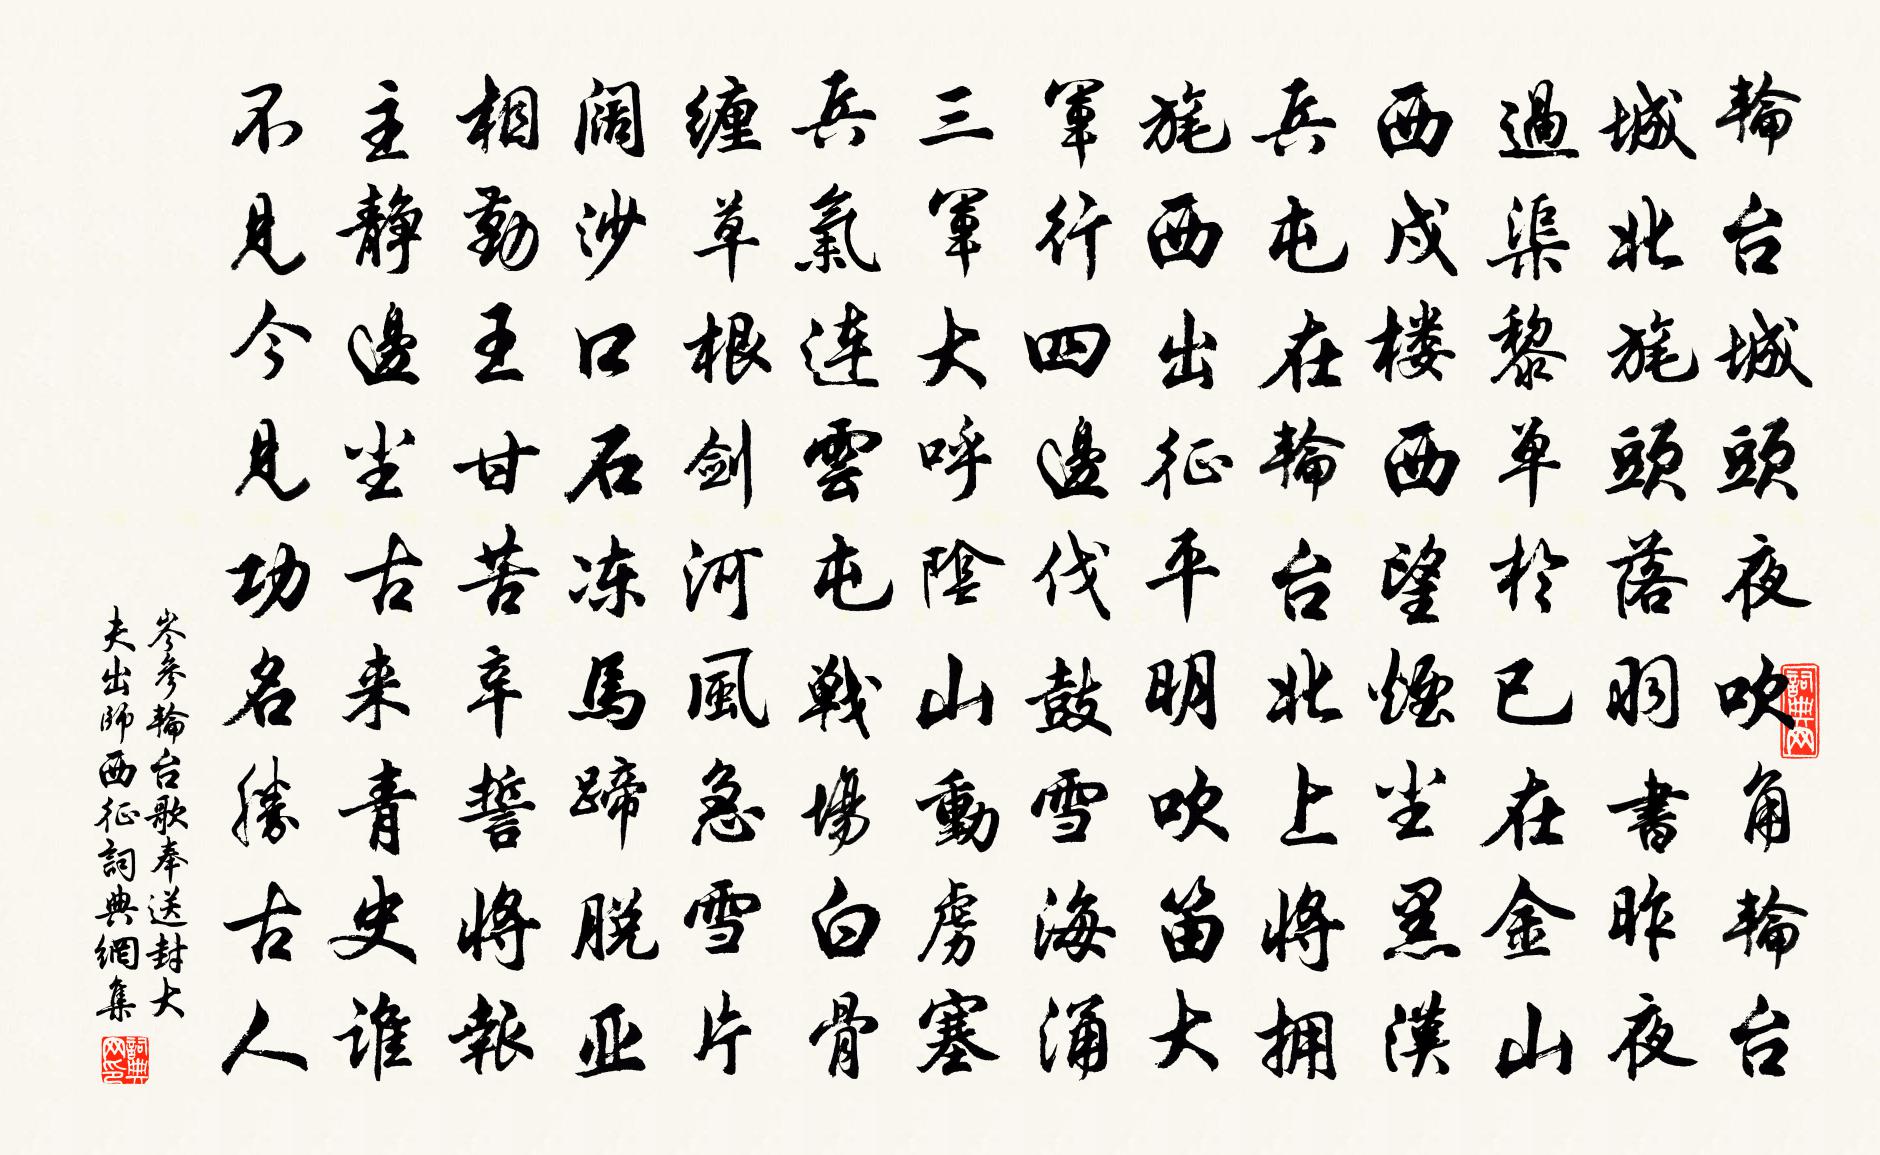 輪台城頭夜吹角輪台
城北旄頭落羽書昨夜
過渠黎单於已在金山
西戍楼西望煙尘黑漠
兵屯在輪台北上將拥
旄西出征平明吹笛大
軍行四邊伐鼓雪海涌
三軍大呼陰山動虏塞
兵氣連雲屯戰場白骨
缠草根剑河風急雪片
阔沙口石冻馬蹄脱亚
相勤王甘苦辛誓將報
主靜邊尘古来青史谁
不見今見功名勝古人
岑參輪台歌奉送封大
夫出師西征詞典網集
詞典网
詞典网印